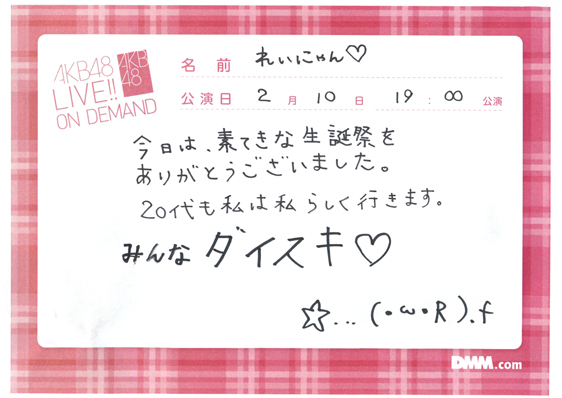 AKB48
LIVE!!
ON DEMAND
AKB
48
名前 れいにゃん♡
公演日 2月10日 19:00公演
今日は、素てきな生誕祭を
ありがとうございました。
20代も私は私らしく行きます。
みんなダイスキ♡
☆...(・ω・R).f
DMM.com